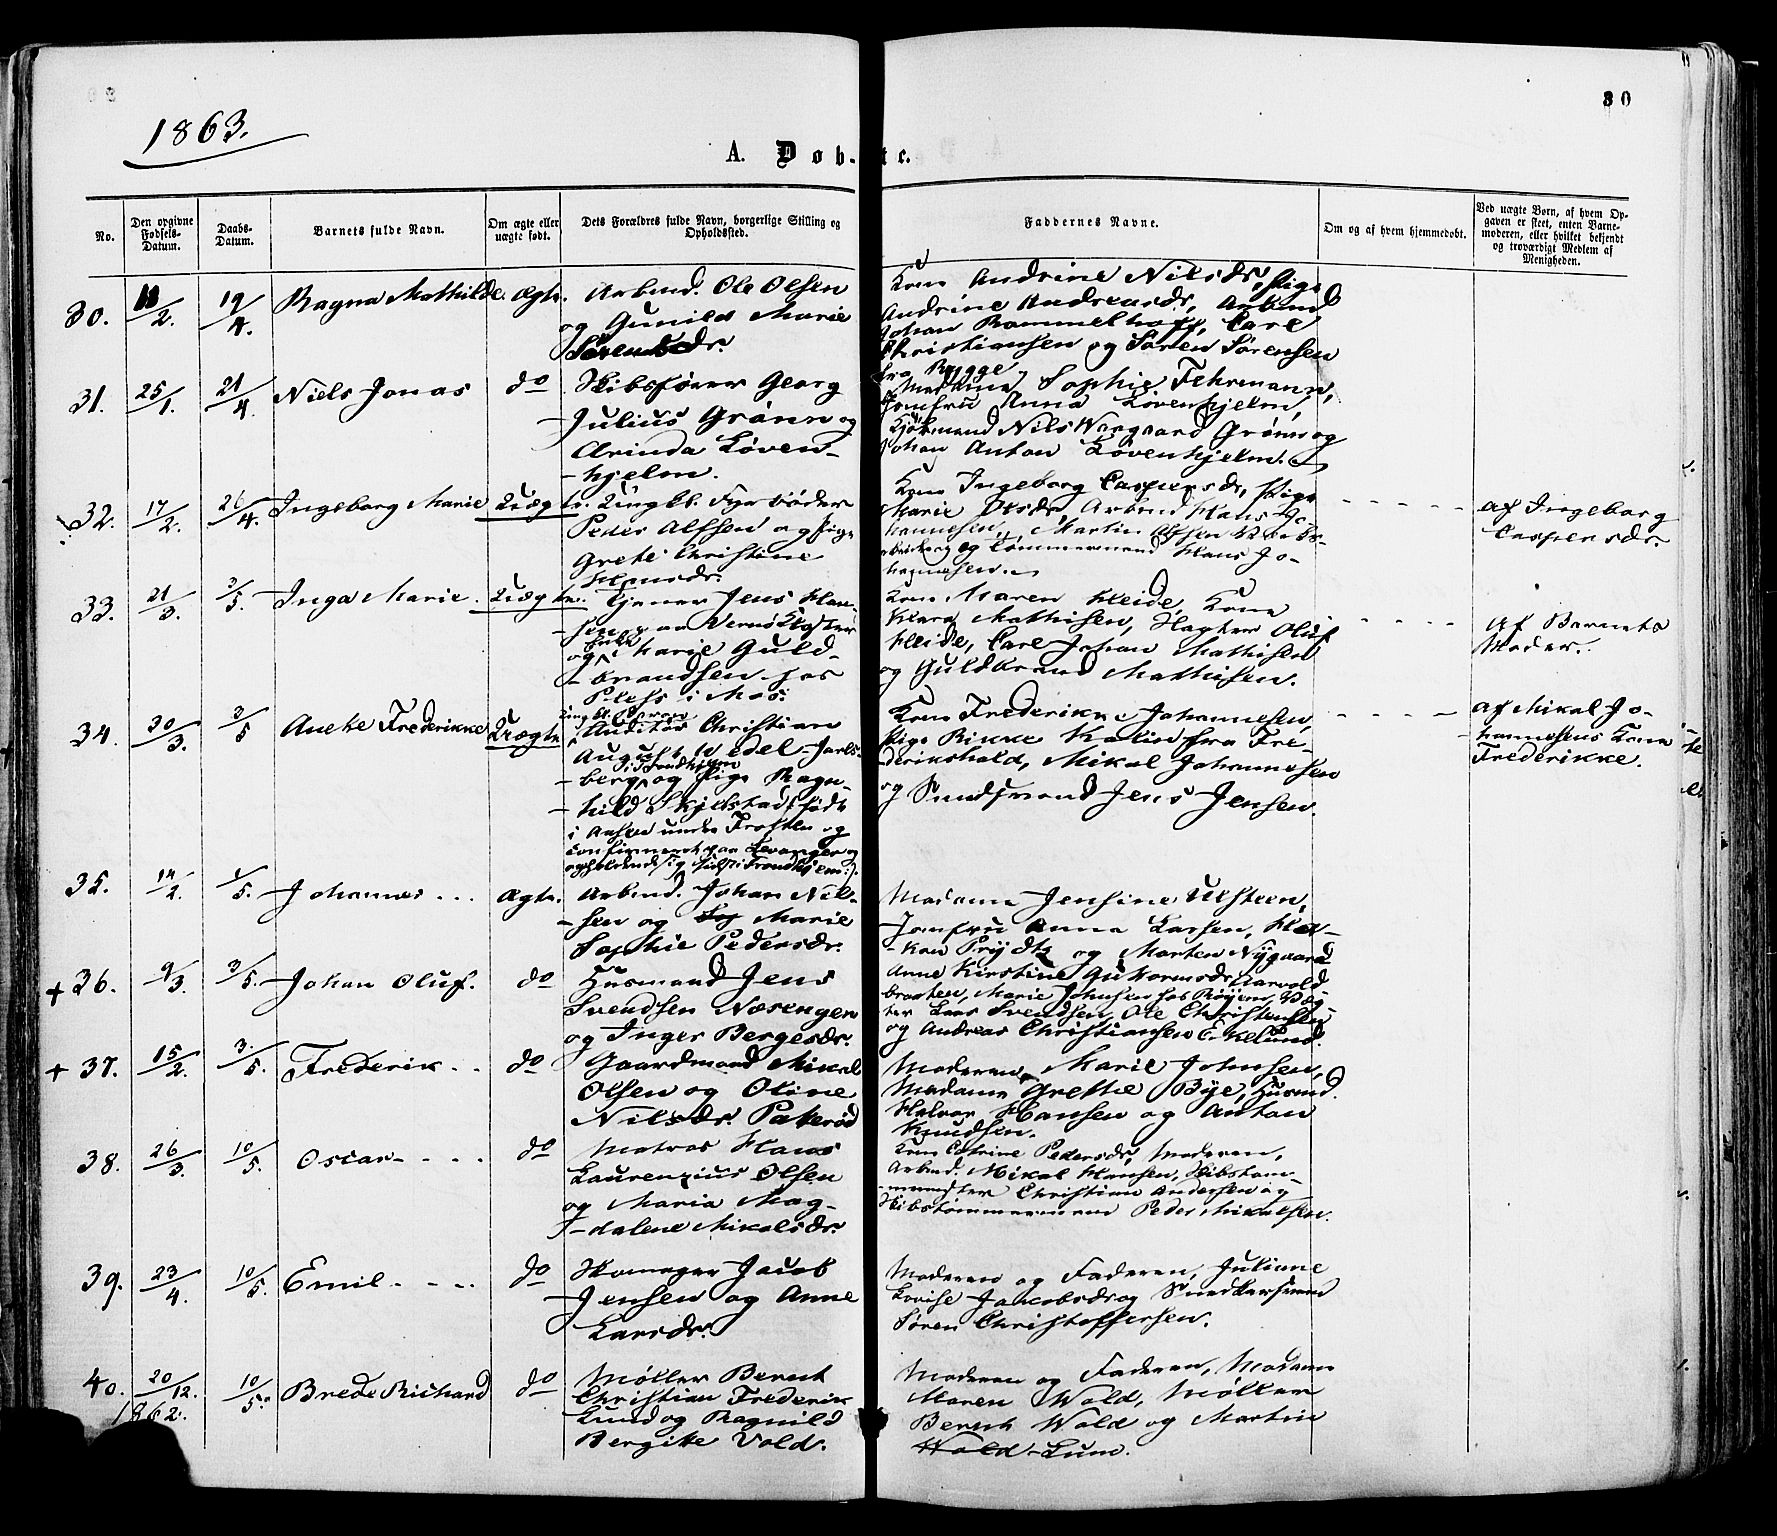 30
1863.
A. Døb-te.
No.
Den opgivne Fødsels-Datum.
Daabs-Datum.
Barnets fulde Navn.
Om ægte eller uægte født.
Dets Forældres fulde Navn, borgerlige Stilling og Opholdssted.
Faddernes Navne.
Om og af hvem hjemmedøbt.
Ved uægte Børn, af hvem Opgaven er skeet, enten Barnemoderen, eller hvilket bekjendt og troværdigt Medlem af Menigheden.
30. 18/2. 19/4. Ragna Mathilde. Ægte.
Arbmd. Ole Olsen
og Gunild Marie
Sørensdr.
Kone Andrine Nilsdr, Pige
Andrine Andreasdr, Arbmd
Johan Rammelhoff, Carl
Christiansen og Søren Sørensen
fra Rygge
31. 25/1. 21/4. Niels Jonas do
Skibsfører Georg
Julius Grønn og
Arinda Løven-
-hjelm.
Madame Sophie Fehrmann,
Jomfru Anna Løvenhjelm,
Kjøbmand Nils Waagaard Grønn og
Johan Anton Løvenhjelm.
32. 17/2. 26/4. Ingeborg Marie Uægte.
Ungkl. Fyrbøder
Peder Alfsen og Pige
Grethe Christine
Hansdr.
Kone Ingeborg Caspersdr, Pige
Marie Olsdr, Arbmd Hans Jo-
hannesen, Martin Olsen
og Tømmermand Hans Jo-
hannesen.
af Ingeborg
Caspersdr.
33. 21/3. 3/5. Inga Marie. Uægte.
Tjener Jens Han-
-sen paa Værns Kloster
og Marie Guld-
-brandsen hos
Pless i Mos.
Kone Maren Heide, Kone
Klara Mathisen, Oluf
Heide, Carl Johan Mathisen
og Guldbrand Mathisen.
Af Barnets
Moder.
34. 30/3. 3/5 Anette Frederikke Uægte
Auditør Christian
August Wedel-Jarls-
-berg i Trondhjem og Pige Ragn-
-hild Skjelstad, født
i Aasen under Frosten og
confirmeret paa Levanger og
opholdende sig sidst i Trondhjem.
Kone Frederikke Johannesen,
Pige Rikke Kalin fra Fre-
derikshald, Mikal Johannesen
og Sundmand Jens Jensen.
af Mikal Jo-
-hannesens Kone
Frederikke.
35. 14/2. 1/5. Johannes... Ægte.
Arbmd. Johan Nil-
-sen og Marie
Sophie Pedersdr.
Madame Jensine Ulsteen,
Jomfru Anna Larsen, Haa-
-kon Prydtz og Morten Nygaard
+ 36. 9/3. 3/5. Johan Oluf. do
Husmand Jens
Svendsen Næsengen
og Inger Bergesdr.
Anne Kirstine Guttormsdr
braaten, Marie Johnsen hos Røyem,
Lars Svendsen, Ole Christensen
og Andreas Christiansen Ekelund.
+ 37. 15/2. 3/5. Frederik.. do
Gaardmand Mikal
Olsen og Oline
Nilsdr. Paterød
Moderen, Marie Johnsen,
Madame Grethe Bye, Husmd.
Halvor Hansen og Anton
Knudsen.
38. 26/3. 10/5. Oscar.... do
Matros Hans
Laurenzius Olsen
og Maria Mag-
-dalene Mikalsdr.
Kone Cathrine Pedersdr, Moderen,
Arbmd. Mikal Hansen, Skibstøm-
-mermester Christian Andersen og
Skibstømmermand Peder Mikalsen.
39. 23/4. 10/5. Emil.... do
Skomager Jacob
Jensen og Anne
Larsdr.
Moderen og Faderen, Juliane
Lovise Jacobsdr og Snedkersvend
Søren Christoffersen.
40. 20/12. 1862. 10/5. Brede Richard do
Møller Berent
Christian Frederik
Lund og Ragnild
Bergitte Vold.
Moderen og Faderen, Madam
Maren Wold, Møller
Berent Wold og Martin
Wold-Lum.